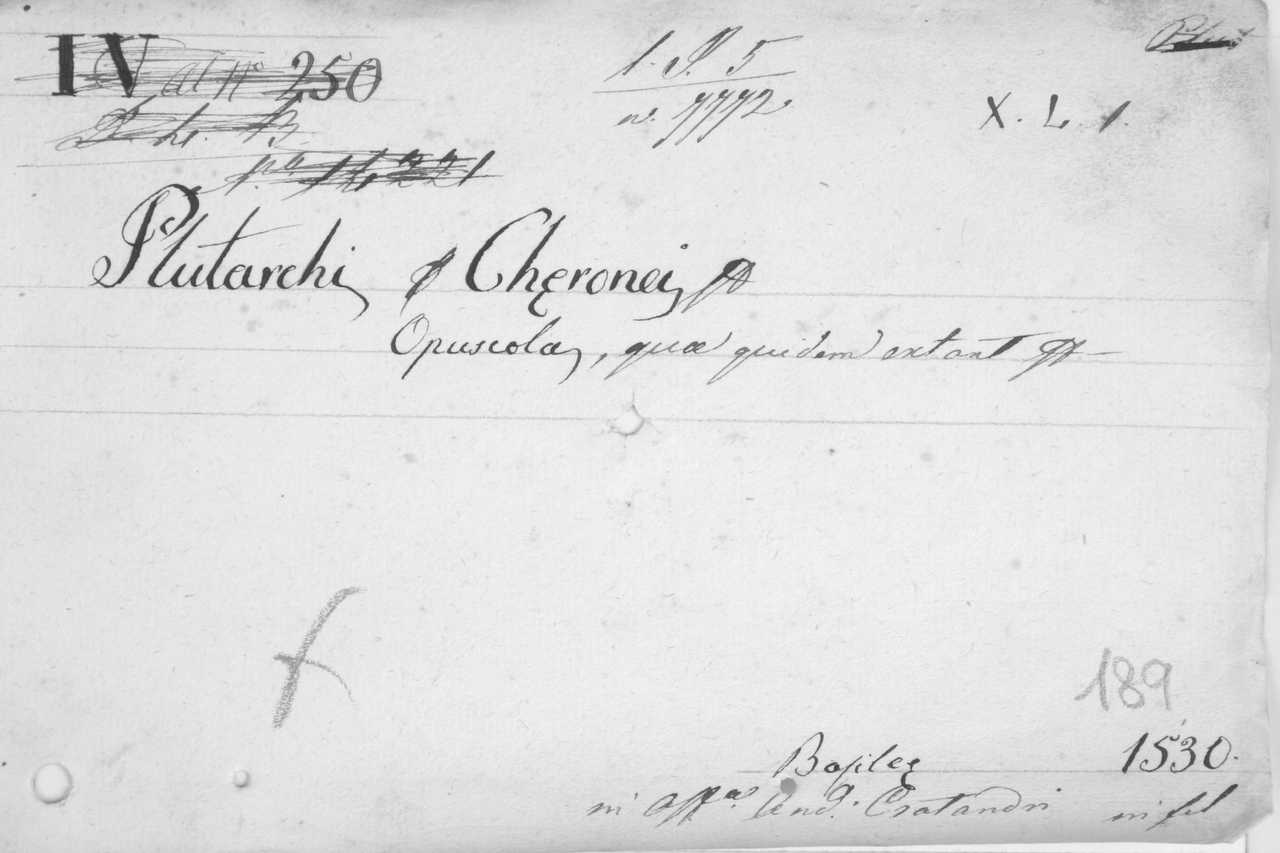 IV al No 250
1. S. 5
n. 7772.
X. L. 1.
Plutarchi Chęronei
Opuscola, quæ quidem extant
189
Basileę 1530.
in offa. And. Cratandri in fol